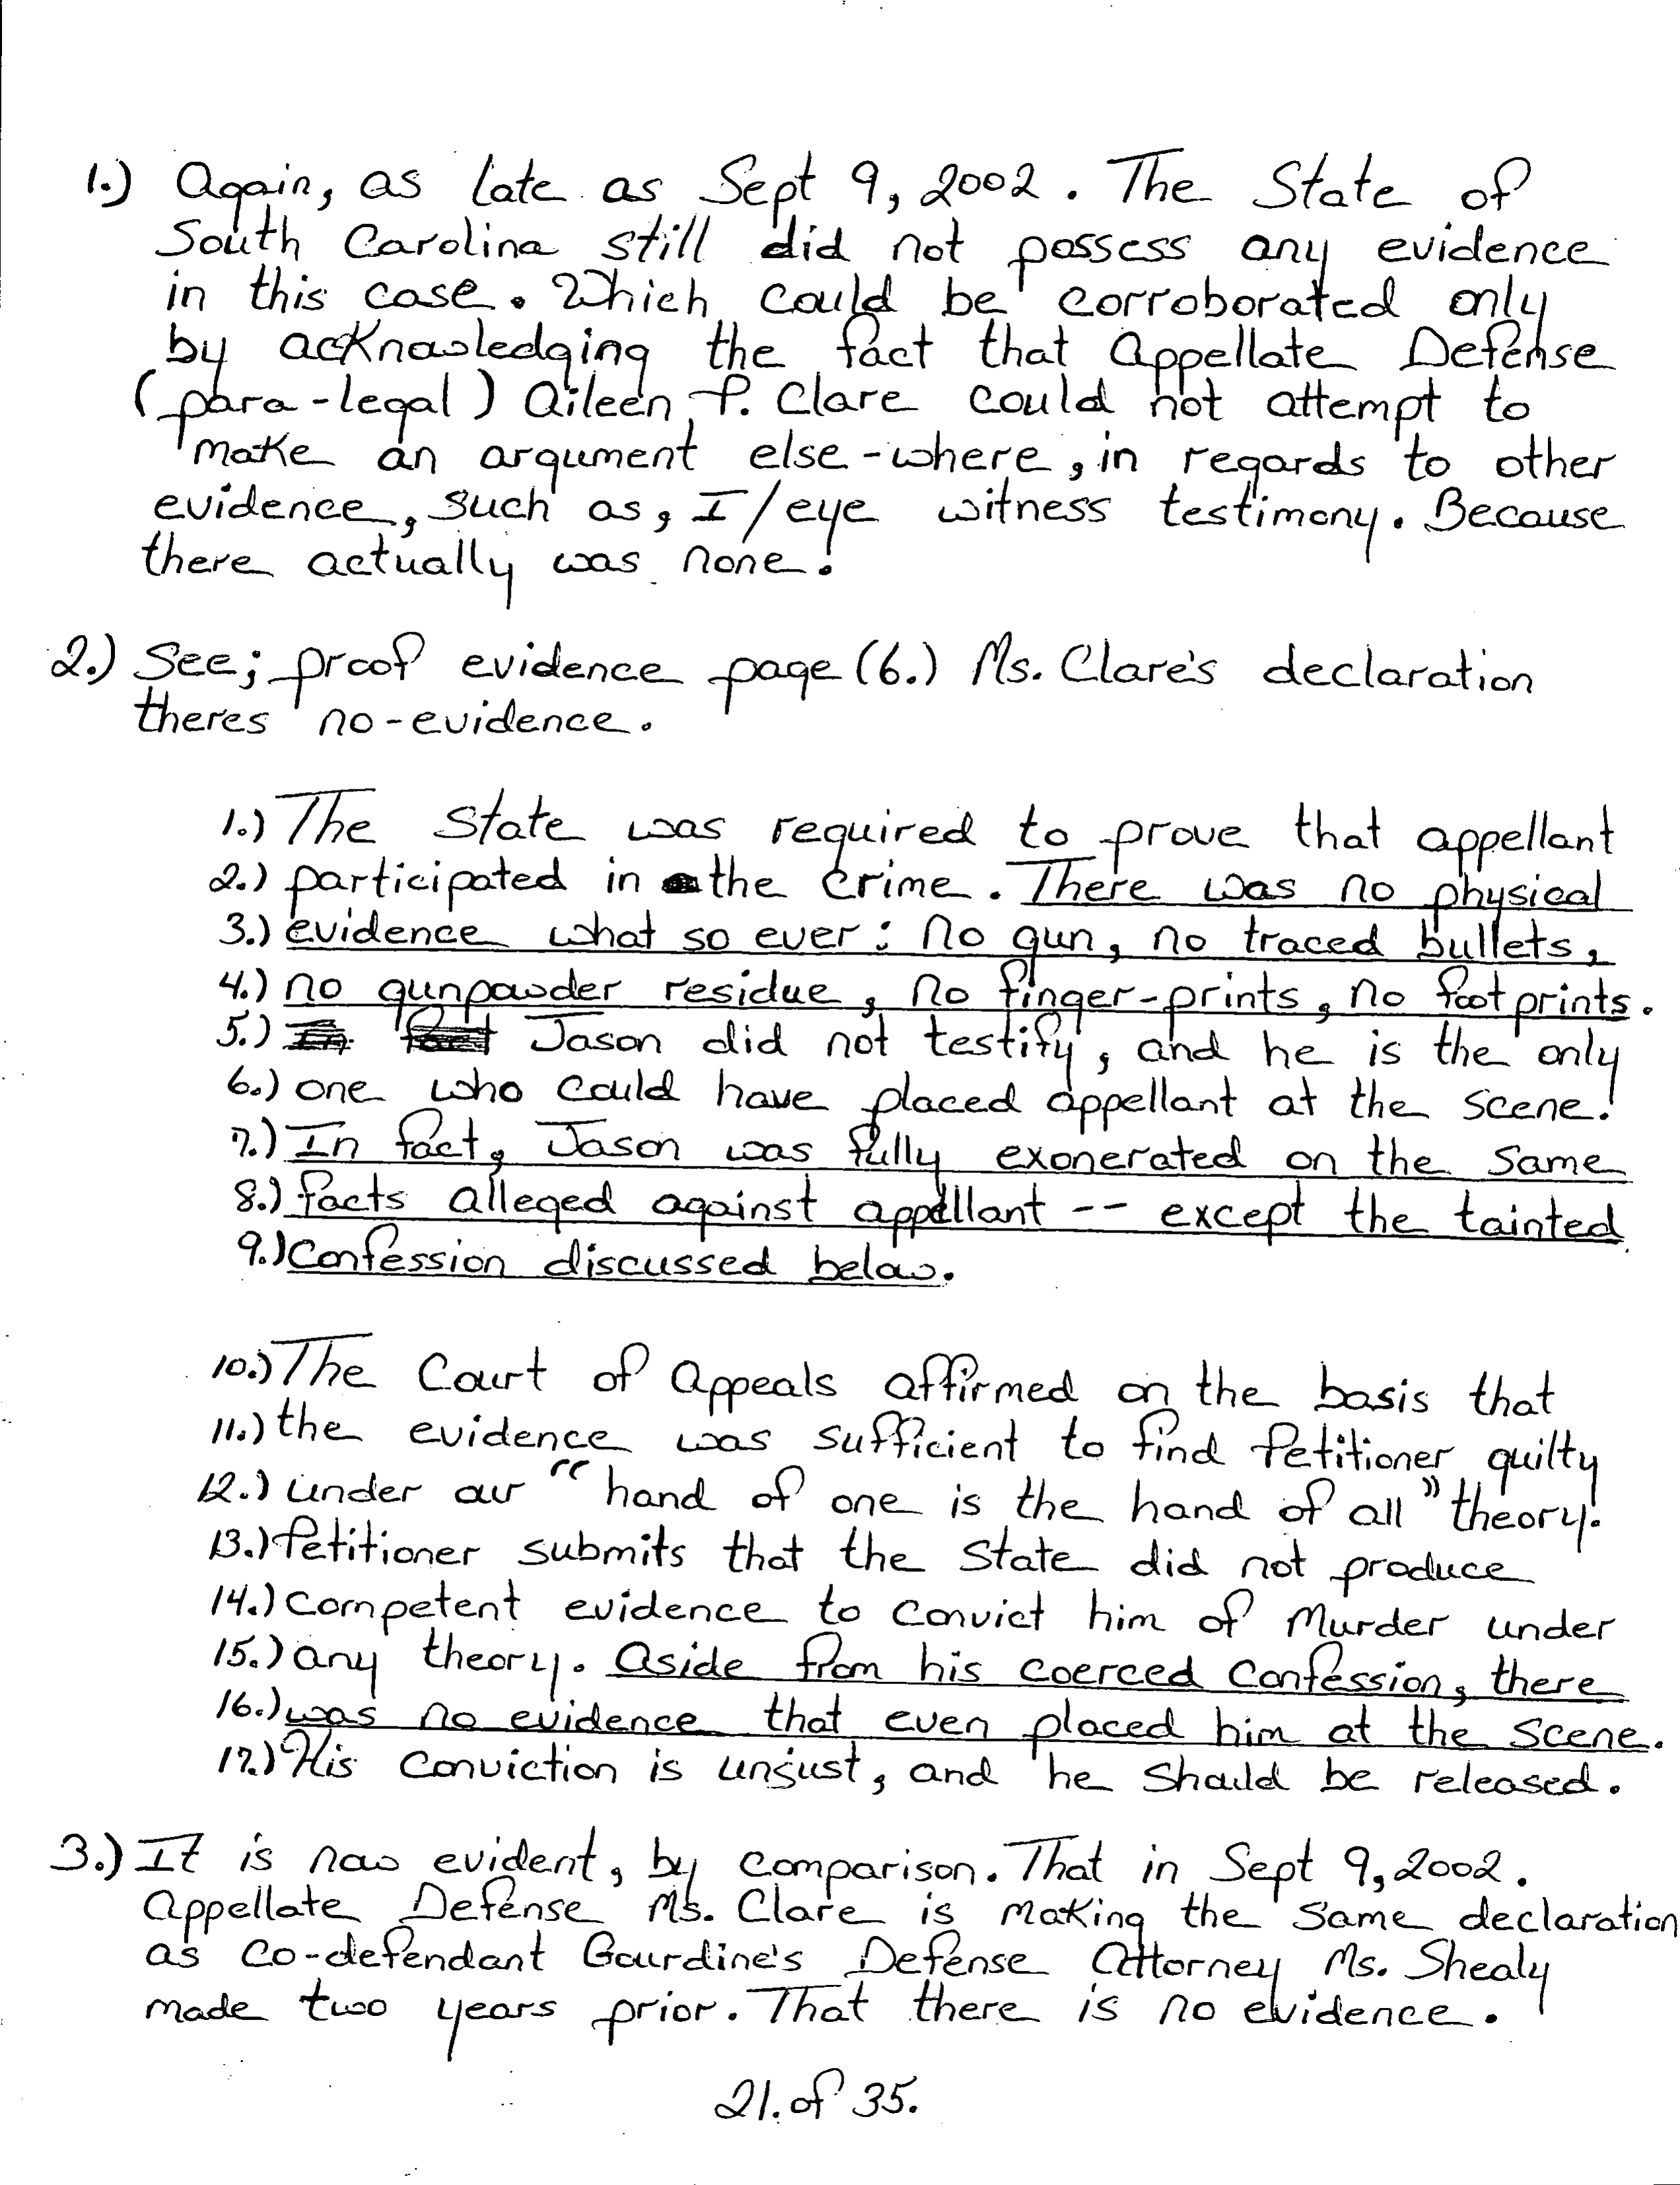 1.) Again, as late as Sept 9, 2002. The State of
South Carolina still did not possess any evidence
in this case. Which could be corroborated only
by acknowledging the fact that Appellate Defense
(para-legal) Aileen P. Clare could not attempt to
make an argument else-where, in regards to other
evidence, such as, I/eye witness testimony. Because
there actually was none.
2.) See; proof evidence page (6.) Ms. Clare's declaration
theres no-evidence.
1.) The State was required to prove that appellant
2.) participated in the crime. There was no physical
3.) evidence what so ever: No gun, no traced bullets,
4.) no gunpowder residue, no finger-prints, no foot prints.
5.) Jason did not testify, and he is the only
6.) one who could have placed appellant at the scene.
7.) In fact, Jason was fully exonerated on the same
8.) facts alleged against appellant -- except the tainted
9.) Confession discussed below.
10.) The Court of Appeals affirmed on the basis that
11.) the evidence was sufficient to find Petitioner guilty
12.) under our "hand of one is the hand of all" theory.
13.) Petitioner submits that the State did not produce
14.) competent evidence to convict him of Murder under
15.) any theory. Aside from his coerced confession, there
16.) was no evidence that even placed him at the scene.
17.) His conviction is unjust, and he should be released.
3.) It is now evident, by comparison. That in Sept 9, 2002.
Appellate Defense Ms. Clare is making the same declaration
as co-defendant Gourdine's Defense Attorney Ms. Shealy
made two years prior. That there is no evidence.
21. of 35.